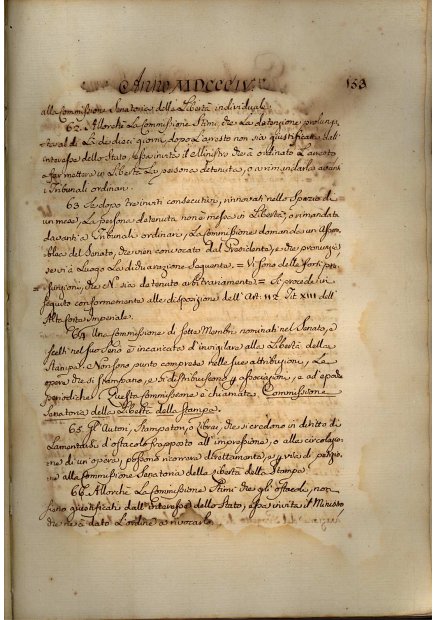 Anno MDCCCIV.
133
alla Commissione Senatoria della Libertà individuale
62. Allorchè la Commissione stimi, che la detenzione prolunga-
ta al di là dei dieci giorni dopo l'arresto non sia giustificata dall'
interesse dello Stato, essa invita il Ministro che à ordinato l'arresto
a far mettere in Libertà la persona detenuta, o a rimandarla avanti
i Tribunali ordinarj.
63. Se dopo tre inviti consecutivi, rinnovati nello Spazio di
un mese, la persona detenuta non è messa in Libertà, o rimandata
davanti a Tribunali ordinarj, la Commissione domanda un Assem-
blea del Senato, che vien convocato dal Presidente, e che pronunzia
se vi è Luogo la dichiarazione Seguente = Vi sono delle forti pre-
sunzioni, che N. sia detenuto arbitrariamente = Si procede in
seguito conformemente alle disposizione dell'Art: 112 Tit XIII dell'
Alta Corte Imperiale.
64 Una Commissione di sette Membri nominati nel Senato, e
scelti nel suo Seno è incaricata d'invigilare alla Libertà della
Stampa. Non sono punto comprese nelle sue attribuzioni, le
opere che si stampano, e si distribuiscono p associazione, e ad epoche
periodiche. Questa commissione è chiamata Commissione
Senatoria della Libertà della Stampa.
65. Gli Autori, Stampatori, o Librai, che si credono in diritto di
lamentarsi d'ostacolo frapposto all'impressione, o alla circolazio-
ne di un opera, possono ricorrere direttamente, e p via di petizio-
ne alla Commissione Senatoria della Libertà della Stampa.
66. Allorchè la Commissione stimi che gli ostacoli, non
siano giustificati dall'Interesse dello Stato, essa invita il Ministro
che à dato l'ordine a rivocarlo.